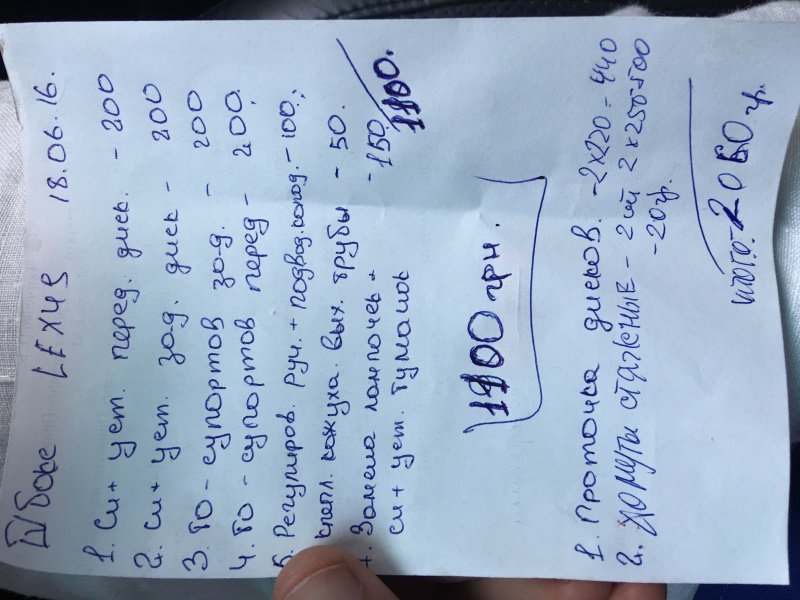 Боке LEXUS 18.06.16.
1. Сн + уст. перед. диск. - 200
2. Сн + уст. зад. диск - 200
3. ТО - супортов зад. - 200
4. ТО - супортов перед - 200.
5. Регулиров. руч. + подвод. колод. - 100.
кожуха вых. трубы - 50.
7. Замена лампочек + - 150
сн + уст. туманок
1100.
1100 грн.
1. Проточка дисков. - 2x220 = 440
2. Хомуты стяжные - 2 шт 2x250=500
- 20 гр.
итого: 2060 гр.